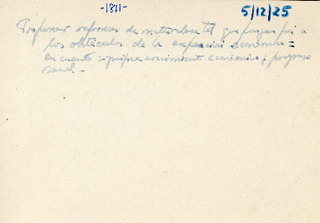 -1811-
5/12/25
Proponer reformas de naturaleza tal que pongan fin a
los obstáculos de la expansión económica=
en cuanto significa crecimiento económico y progreso
social-